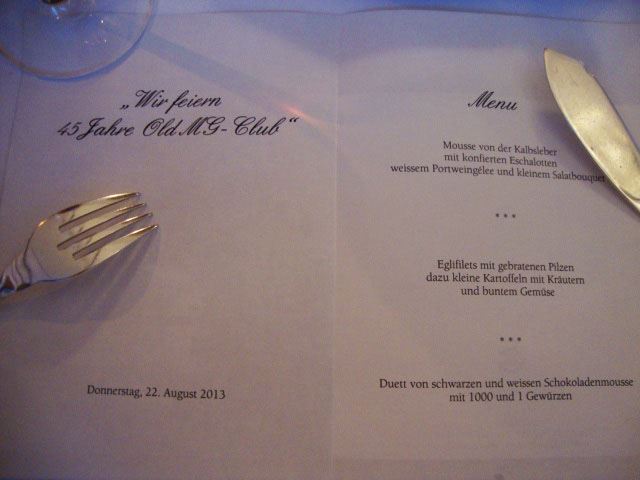 „Wir feiern
45 Jahre Old MG-Club“
Donnerstag, 22. August 2013
Menu
Mousse von der Kalbsleber
mit konfierten Eschalotten
weissem Portweingélee und kleinem Salatbouquet
***
Eglifilets mit gebratenen Pilzen
dazu kleine Kartoffeln mit Kräutern
und buntem Gemüse
***
Duett von schwarzen und weissen Schokoladenmousse
mit 1000 und 1 Gewürzen